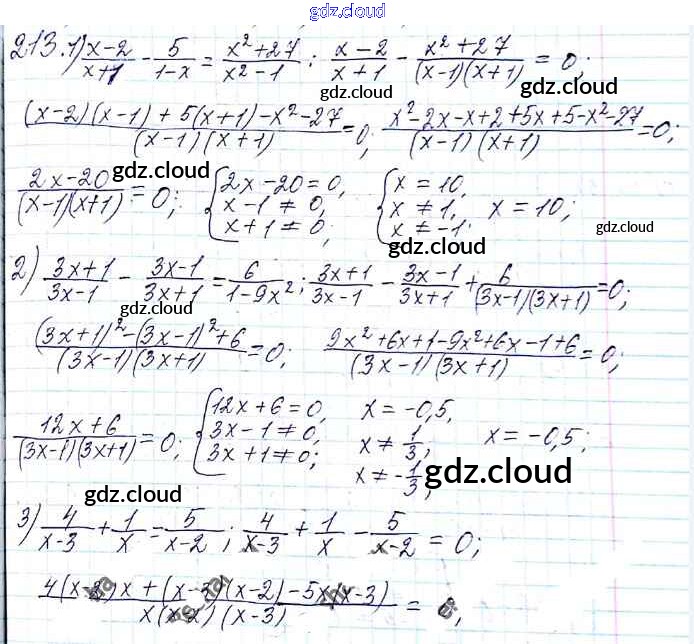 gdz.cloud
213. 1) (x-2)/(x+1) - 5/(1-x) = (x²+27)/(x²-1); (x-2)/(x+1) - (x²+27)/((x-1)(x+1)) = 0;
((x-2)(x-1) + 5(x+1) - x² - 27)/((x-1)(x+1)) = 0; (x²-2x-x+2+5x+5-x²-27)/((x-1)(x+1)) = 0;
gdz.cloud gdz.cloud
(2x-20)/((x-1)(x+1)) = 0; { 2x-20=0, x-1≠0, x+1≠0; { x=10, x≠1, x≠-1. x=10;
gdz.cloud gdz.cloud gdz.cloud
2) (3x+1)/(3x-1) - (3x-1)/(3x+1) = 6/(1-9x²); (3x+1)/(3x-1) - (3x-1)/(3x+1) + 6/((3x-1)(3x+1)) = 0;
gdz.cloud
((3x+1)²-(3x-1)²+6)/((3x-1)(3x+1)) = 0; (9x²+6x+1-9x²+6x-1+6)/((3x-1)(3x+1)) = 0;
(12x+6)/((3x-1)(3x+1)) = 0; { 12x+6=0, 3x-1≠0, 3x+1≠0; x=-0,5, x≠1/3, x≠-1/3; x=-0,5;
gdz.cloud
gdz.cloud
3) 4/(x-3) + 1/x = 5/(x-2); 4/(x-3) + 1/x - 5/(x-2) = 0;
(4(x-2)x + (x-3)(x-2) - 5x(x-3))/(x(x-2)(x-3)) = 0;